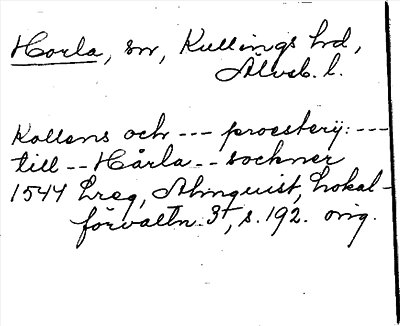 Horla, sn, Kullings hd,
Älvsb. l.
Kollens och --- proestery: ---
till -- Hårla -- sockner
1544 Lreg, Almquist, Lokal-
förvaltn. 3†, s. 192. orig.